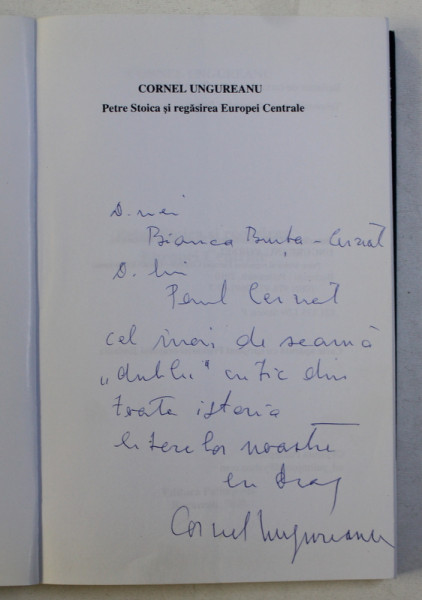 CORNEL UNGUREANU
Petre Stoica și regăsirea Europei Centrale
D-nei
Bianca Burța-Cernat
D-lui
Paul Cernat
cel mai de seamă
„dublu" critic din
toată istoria
literelor noastre
cu drag
Cornel Ungureanu